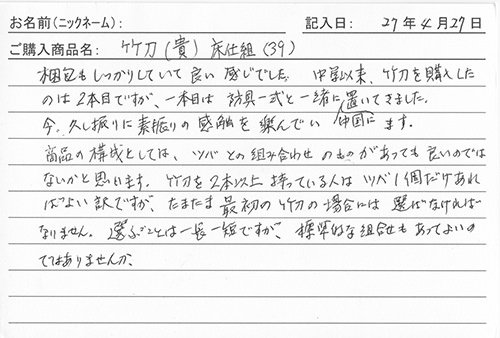 お名前(ニックネーム): 記入日: 27年4月27日
ご購入商品名: 竹刀(貴) 床仕組(39)
梱包もしっかりしていて良い感じでした。中学以来、竹刀を購入した
のは2本目ですが、一本目は防具一式と一緒に中国に置いてきました。
今、久し振りに素振りの感触を楽んでいます。
商品の構成としては、ツバとの組み合わせのものがあっても良いのでは
ないかと思います。竹刀を2本以上持っている人はツバ1個だけあれ
ばよい訳ですが、たまたま最初の竹刀の場合には選ばなければ
なりません。選ぶことは一長一短ですが、標準的な組合せもあってよいの
ではありませんか。